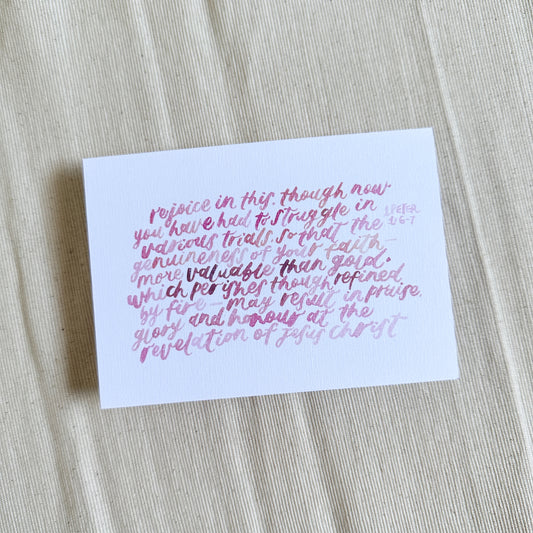 rejoice in this. though now
you have had to struggle in
various trials. so that the
genuineness of your faith—
more valuable than gold.
which perishes though refined
by fire — may result in praise.
glory and honour at the
revelation of jesus christ
1 PETER
1: 6-7